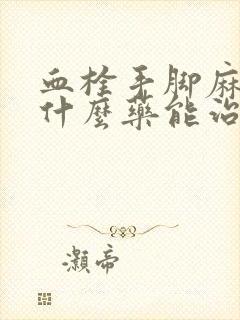 血栓手脚麻
什麼藥能治
灏帝